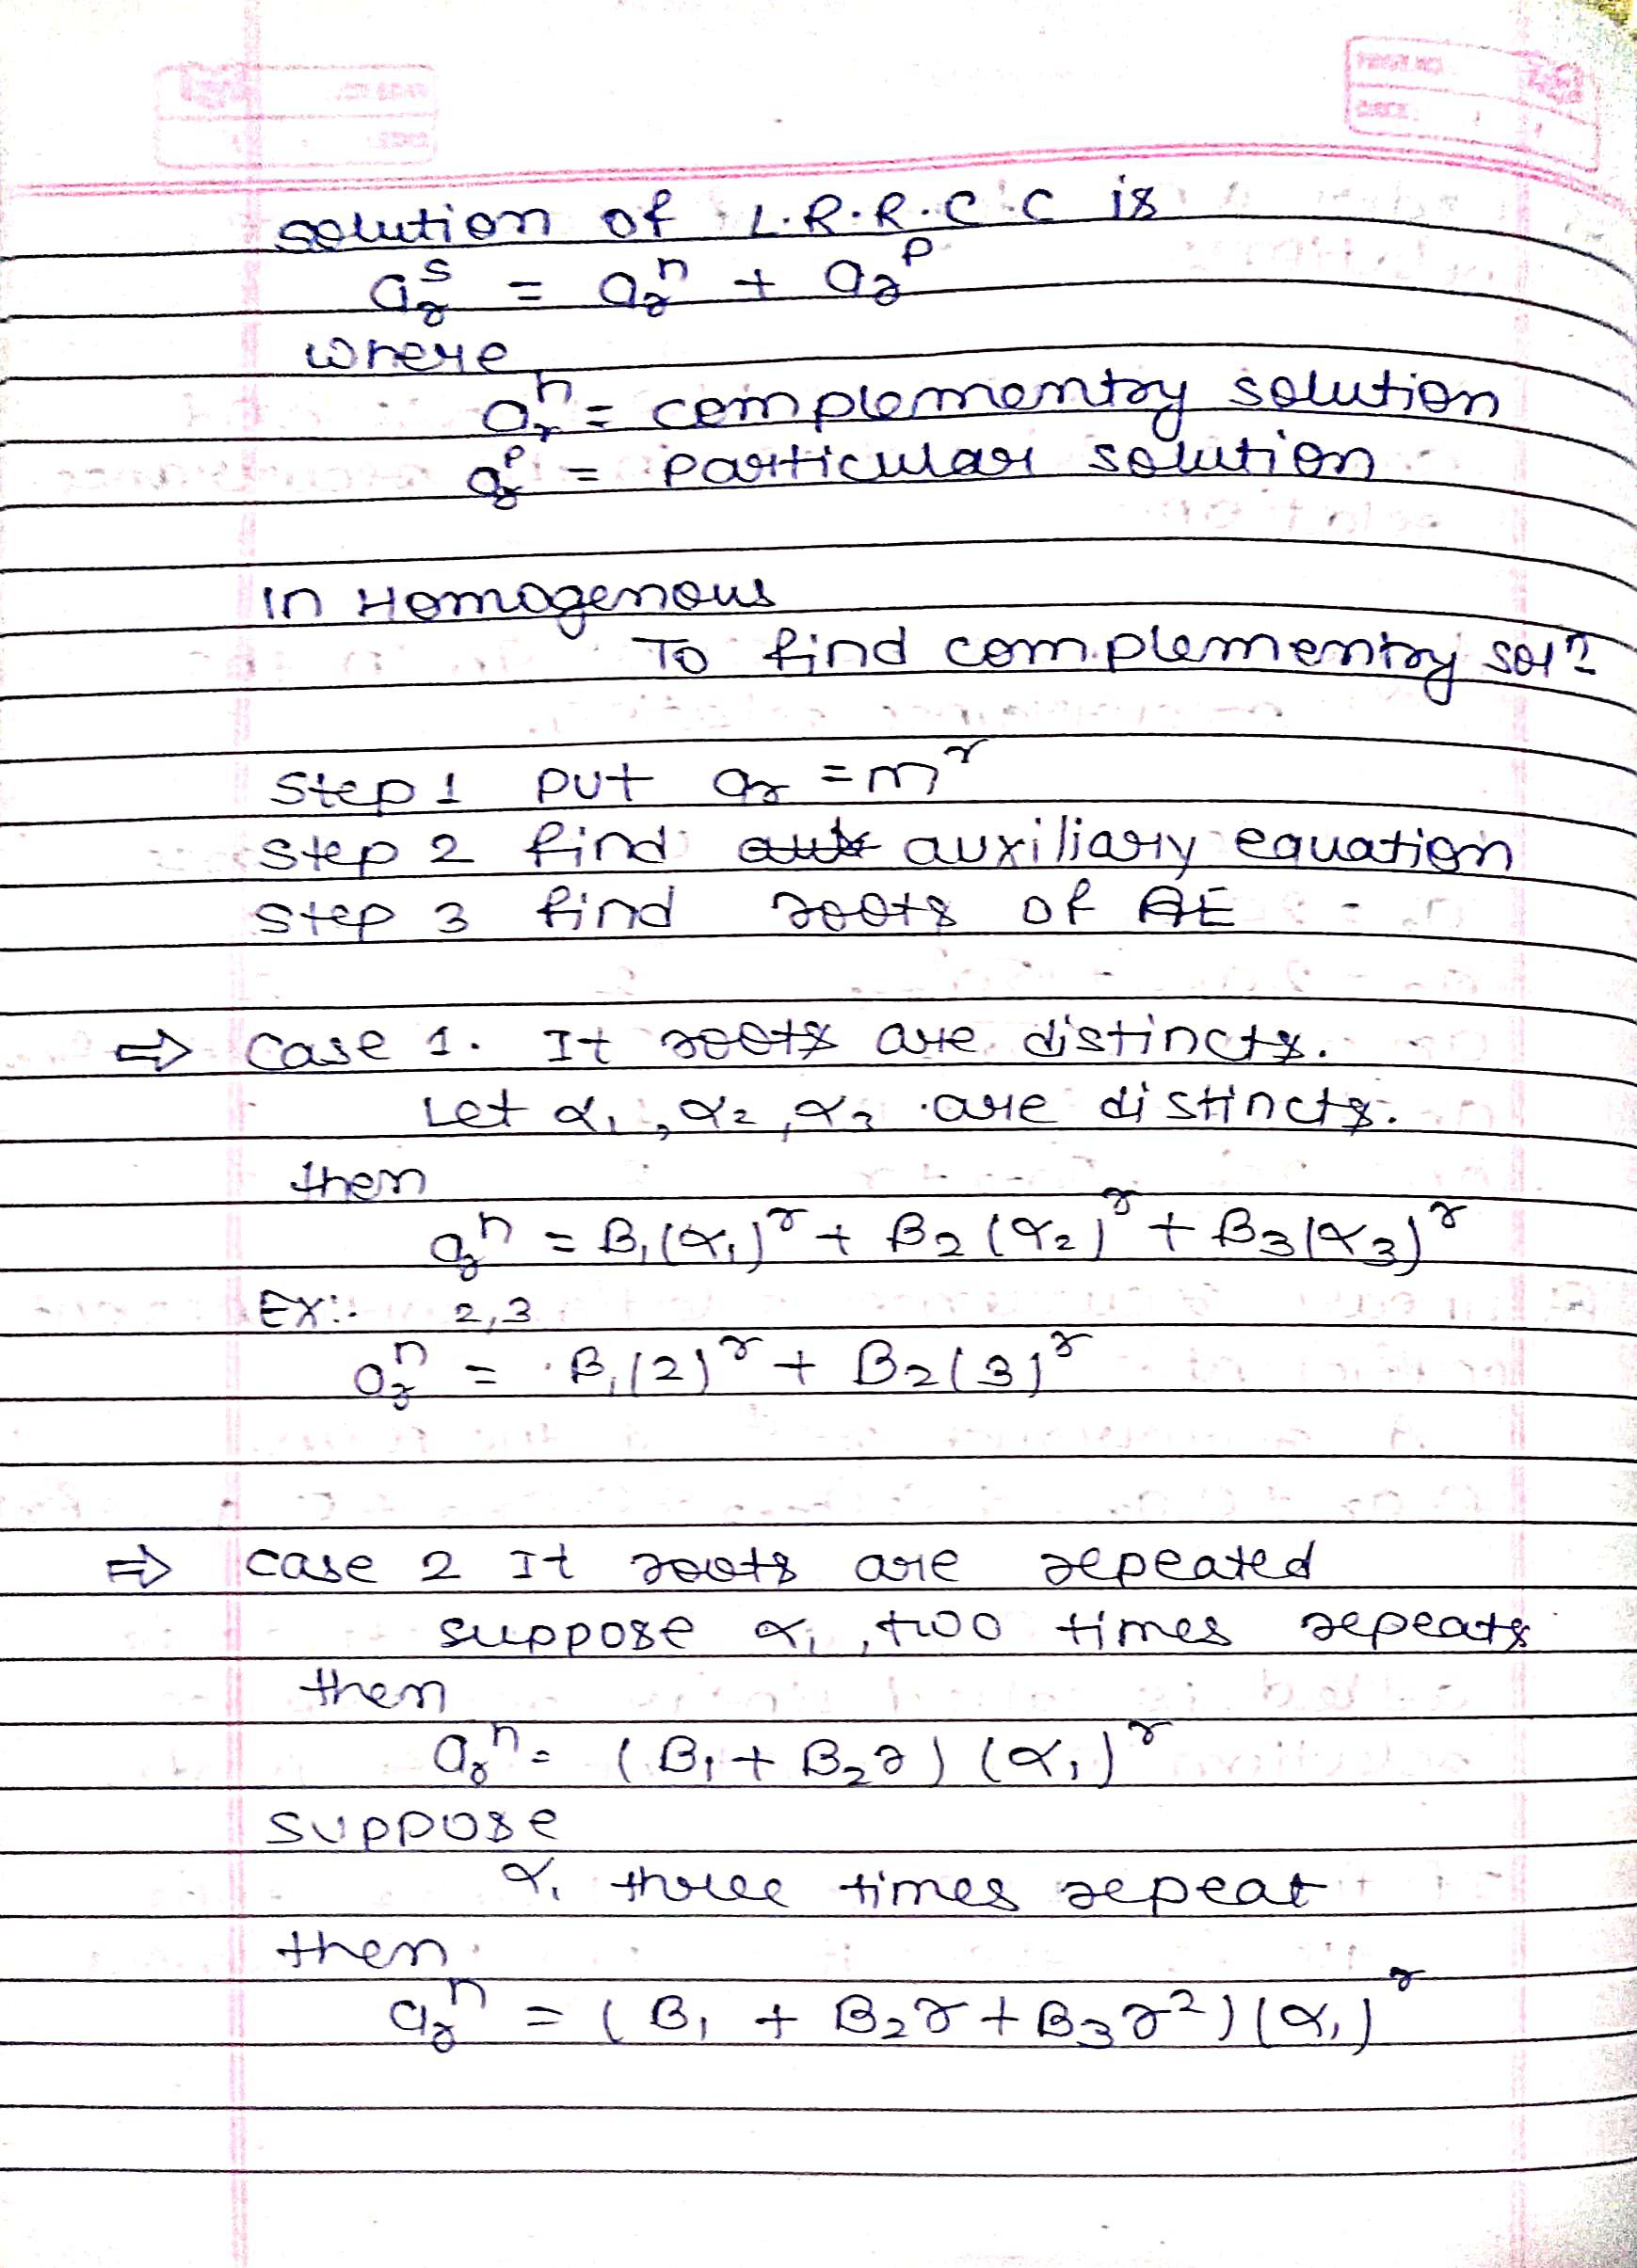 solution of L.R.R.C.C is
aᵣˢ = aᵣʰ + aᵣᵖ
where
aᵣʰ = complementry solution
aᵣᵖ = particular solution
In Homogenous
To find complementry solⁿ
Step 1 put aᵣ = mʳ
Step 2 find auxiliary equation
Step 3 find roots of AE
⇒ Case 1. It roots are distincts.
Let α₁, α₂, α₃ are distincts.
then
aᵣʰ = B₁(α₁)ʳ + B₂(α₂)ʳ + B₃(α₃)ʳ
Ex:. 2,3
aᵣʰ = B₁(2)ʳ + B₂(3)ʳ
⇒ case 2 It roots are repeated
suppose α₁, two times repeats
then
aᵣʰ = (B₁ + B₂r) (α₁)ʳ
suppose
α₁ three times repeat
then
aᵣʰ = (B₁ + B₂r + B₃r²)(α₁)ʳ